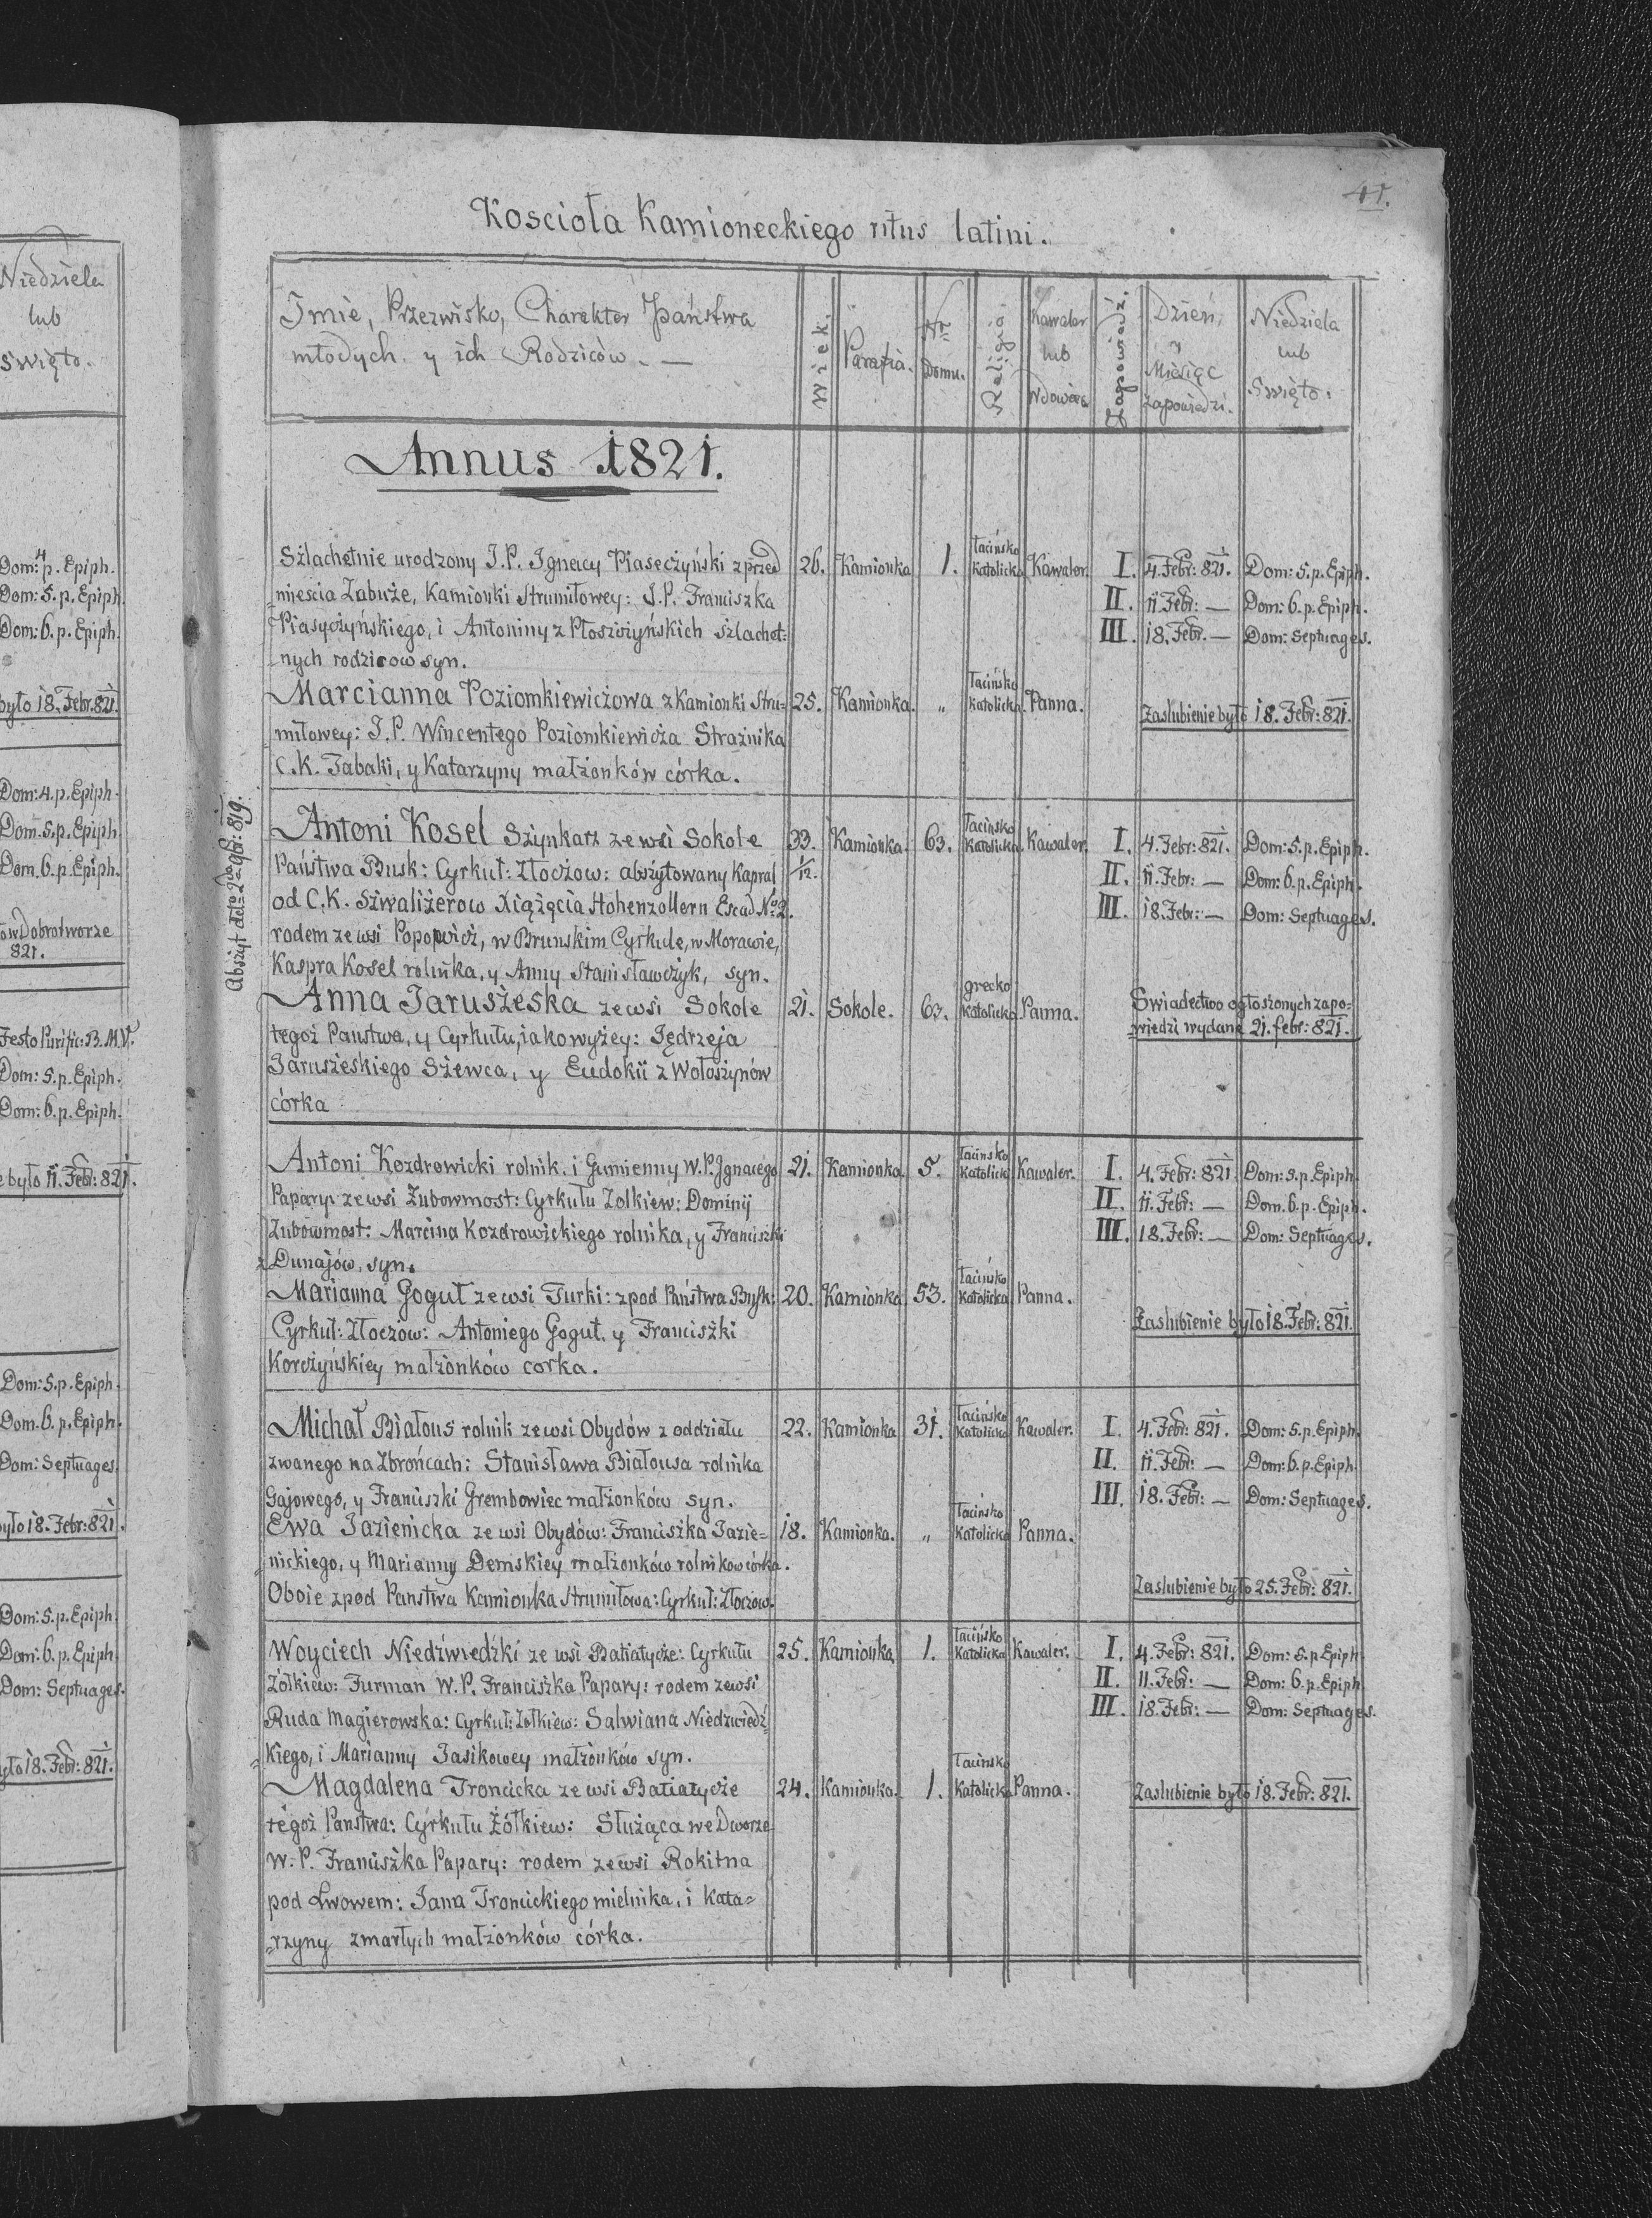 Niedziela
lub
święto.
Dom: 4 p. Epiph.
Dom: 5. p. Epiph
Dom: 6. p. Epiph.
było 18. Febr. 821.
Dom: 4. p. Epiph.
Dom. 5. p. Epiph
Dom. 6. p. Epiph.
ów Dobrotworze
821.
Festo Purific: B. M. V.
Dom: 5. p. Epiph.
Dom: 6. p. Epiph.
było 11. Febr: 821.
Dom: 5. p. Epiph.
Dom. 6. p. Epiph.
Dom: Septuages.
było 18. Febr: 821.
Dom: 5. p. Epiph.
Dom: 6. p. Epiph
Dom: Septuages.
było 18. Febr: 821.
41.
Koscioła Kamioneckiego ritus latini.
Imie, Przezwisko, Charakter Państwa
młodych. y ich Rodziców. —
Wiek.
Parafia.
Nr Domu.
Religia.
Kawaler lub Wdowiec
Zapowiedź.
Dzień, y Miesiąc zapowiedzi.
Niedziela lub Święto.
Annus 1821.
Szlachetnie urodzony J.P. Ignacy Piasecżyński z przed 26. Kamionka 1. łacińsko katolicka Kawaler. I. 4. Febr: 821. Dom: 5. p. Epiph.
mieścia Zabuże, Kamionki Strumiłowey: J.P. Franciszka II. 11. Febr: — Dom: 6. p. Epiph.
Piasycżyńskiego, i Antoniny z Płoszcżyńskich szlachet= III. 18. Febr. — Dom: Septuages.
nych rodzicow syn.
Marcianna Poziomkiewicżowa z Kamionki Stru= 25. Kamionka. " łacińsko katolicka. Panna. Zaslubienie było 18. Febr: 821.
miłowey: J.P. Wincentego Poziomkiewicża Strażnika
C.K. Tabaki, y Katarzyny małżonków córka.
Abszyt ddto 2da 9bri: 819.
Antoni Kosel Szynkarz ze wsi Sokole 33. Kamionka. 63. łacińsko katolicka. Kawaler. I. 4. Febr: 821. Dom: 5. p. Epiph.
Państwa Busk: Cyrkuł: Złocżow: abszytowany Kapral 1/12. II. 11. Febr: — Dom: 6. p. Epiph.
od C.K. Szwaliżerow Xiążęcia Hohenzollern Escad No 2. III. 18. Febr: — Dom: Septuages.
rodem ze wsi Popowicż, w Brunskim Cyrkule, w Morawie,
Kaspra Kosel rolnika, y Anny Stanisławcżyk, syn.
Anna Jaruszeska ze wsi Sokole 21. Sokole. 63. grecko katolicka Panna. Swiadectwo ogłoszonych zapo=
tegoż Panstwa, y Cyrkułu, iako wyżey: Jędrzeja wiedzi wydane 21. febr: 821.
Jaruszeskiego Szewca, y Eudokii z Wołoszynów
córka
Antoni Kozdrowicki rolnik. i Gumienny W.P. Ignacego 21. Kamionka. 5. łacińsko katolicka Kawaler. I. 4. Febr: 821. Dom: 5. p. Epiph.
Papary: ze wsi Żubowmost: Cyrkułu Zolkiew: Dominij II. 11. Febr: — Dom. 6. p. Epiph.
Zubowmost: Marcina Kozdrowickiego rolnika, y Franciszki III. 18. Febr: — Dom: Septuages.
z Dunajów, syn.
Marianna Goguł ze wsi Turki: z pod Państwa Busk: 20. Kamionka 53. łacińsko katolicka Panna.
Cyrkuł: Złoczów: Antoniego Goguł. y Franciszki Zaslubienie było 18. Febr: 821.
Korcżyńskiey małżonków corka.
Michał Białous rolnik ze wsi Obydów z oddziału 22. Kamionka 31. łacińsko katolicka Kawaler. I. 4. Febr: 821. Dom: 5. p. Epiph.
zwanego na Zbrońcach: Stanisława Białousa rolnika II. 11. Febr: — Dom: 6. p. Epiph.
Gajowego, y Franciszki Grembowiec małżonków syn. III. 18. Febr: — Dom: Septuages.
Ewa Jazienicka ze wsi Obydów: Franciszka Jazie= 18. Kamionka. " łacińsko katolicka Panna.
nickiego, y Marianny Demskiey małżonków rolnikow córka.
Oboie z pod Panstwa Kamionka Strumiłowa: Cyrkuł: Złoczow. Zaslubienie było 25. Febr: 821.
Woyciech Niedźwiedźki ze wsi Batiatycże: Cyrkułu 25. Kamionka, 1. łacińsko katolicka Kawaler. I. 4. Febr: 821. Dom: 5. p. Epiph.
Żółkiew: Furman W.P. Franciszka Papary: rodem ze wsi II. 11. Febr: — Dom: 6. p. Epiph
Ruda Magierowska: Cyrkuł: Żołkiew: Salwiana Niedzwiedź= III. 18. Febr: — Dom: Septuages.
kiego, i Marianny Jasikowey małżonków syn.
Magdalena Troncicka ze wsi Batiatycże 24. Kamionka. 1. łacinsko katolicka Panna. Zaslubienie było 18. Febr: 821.
tegoż Panstwa: Cyrkułu Żółkiew: Służąca we Dworze
W. P. Franciszka Papary: rodem ze wsi Rokitna
pod Lwowem: Jana Troncickiego mielnika, i Kata=
rzyny zmarłych małżonków córka.